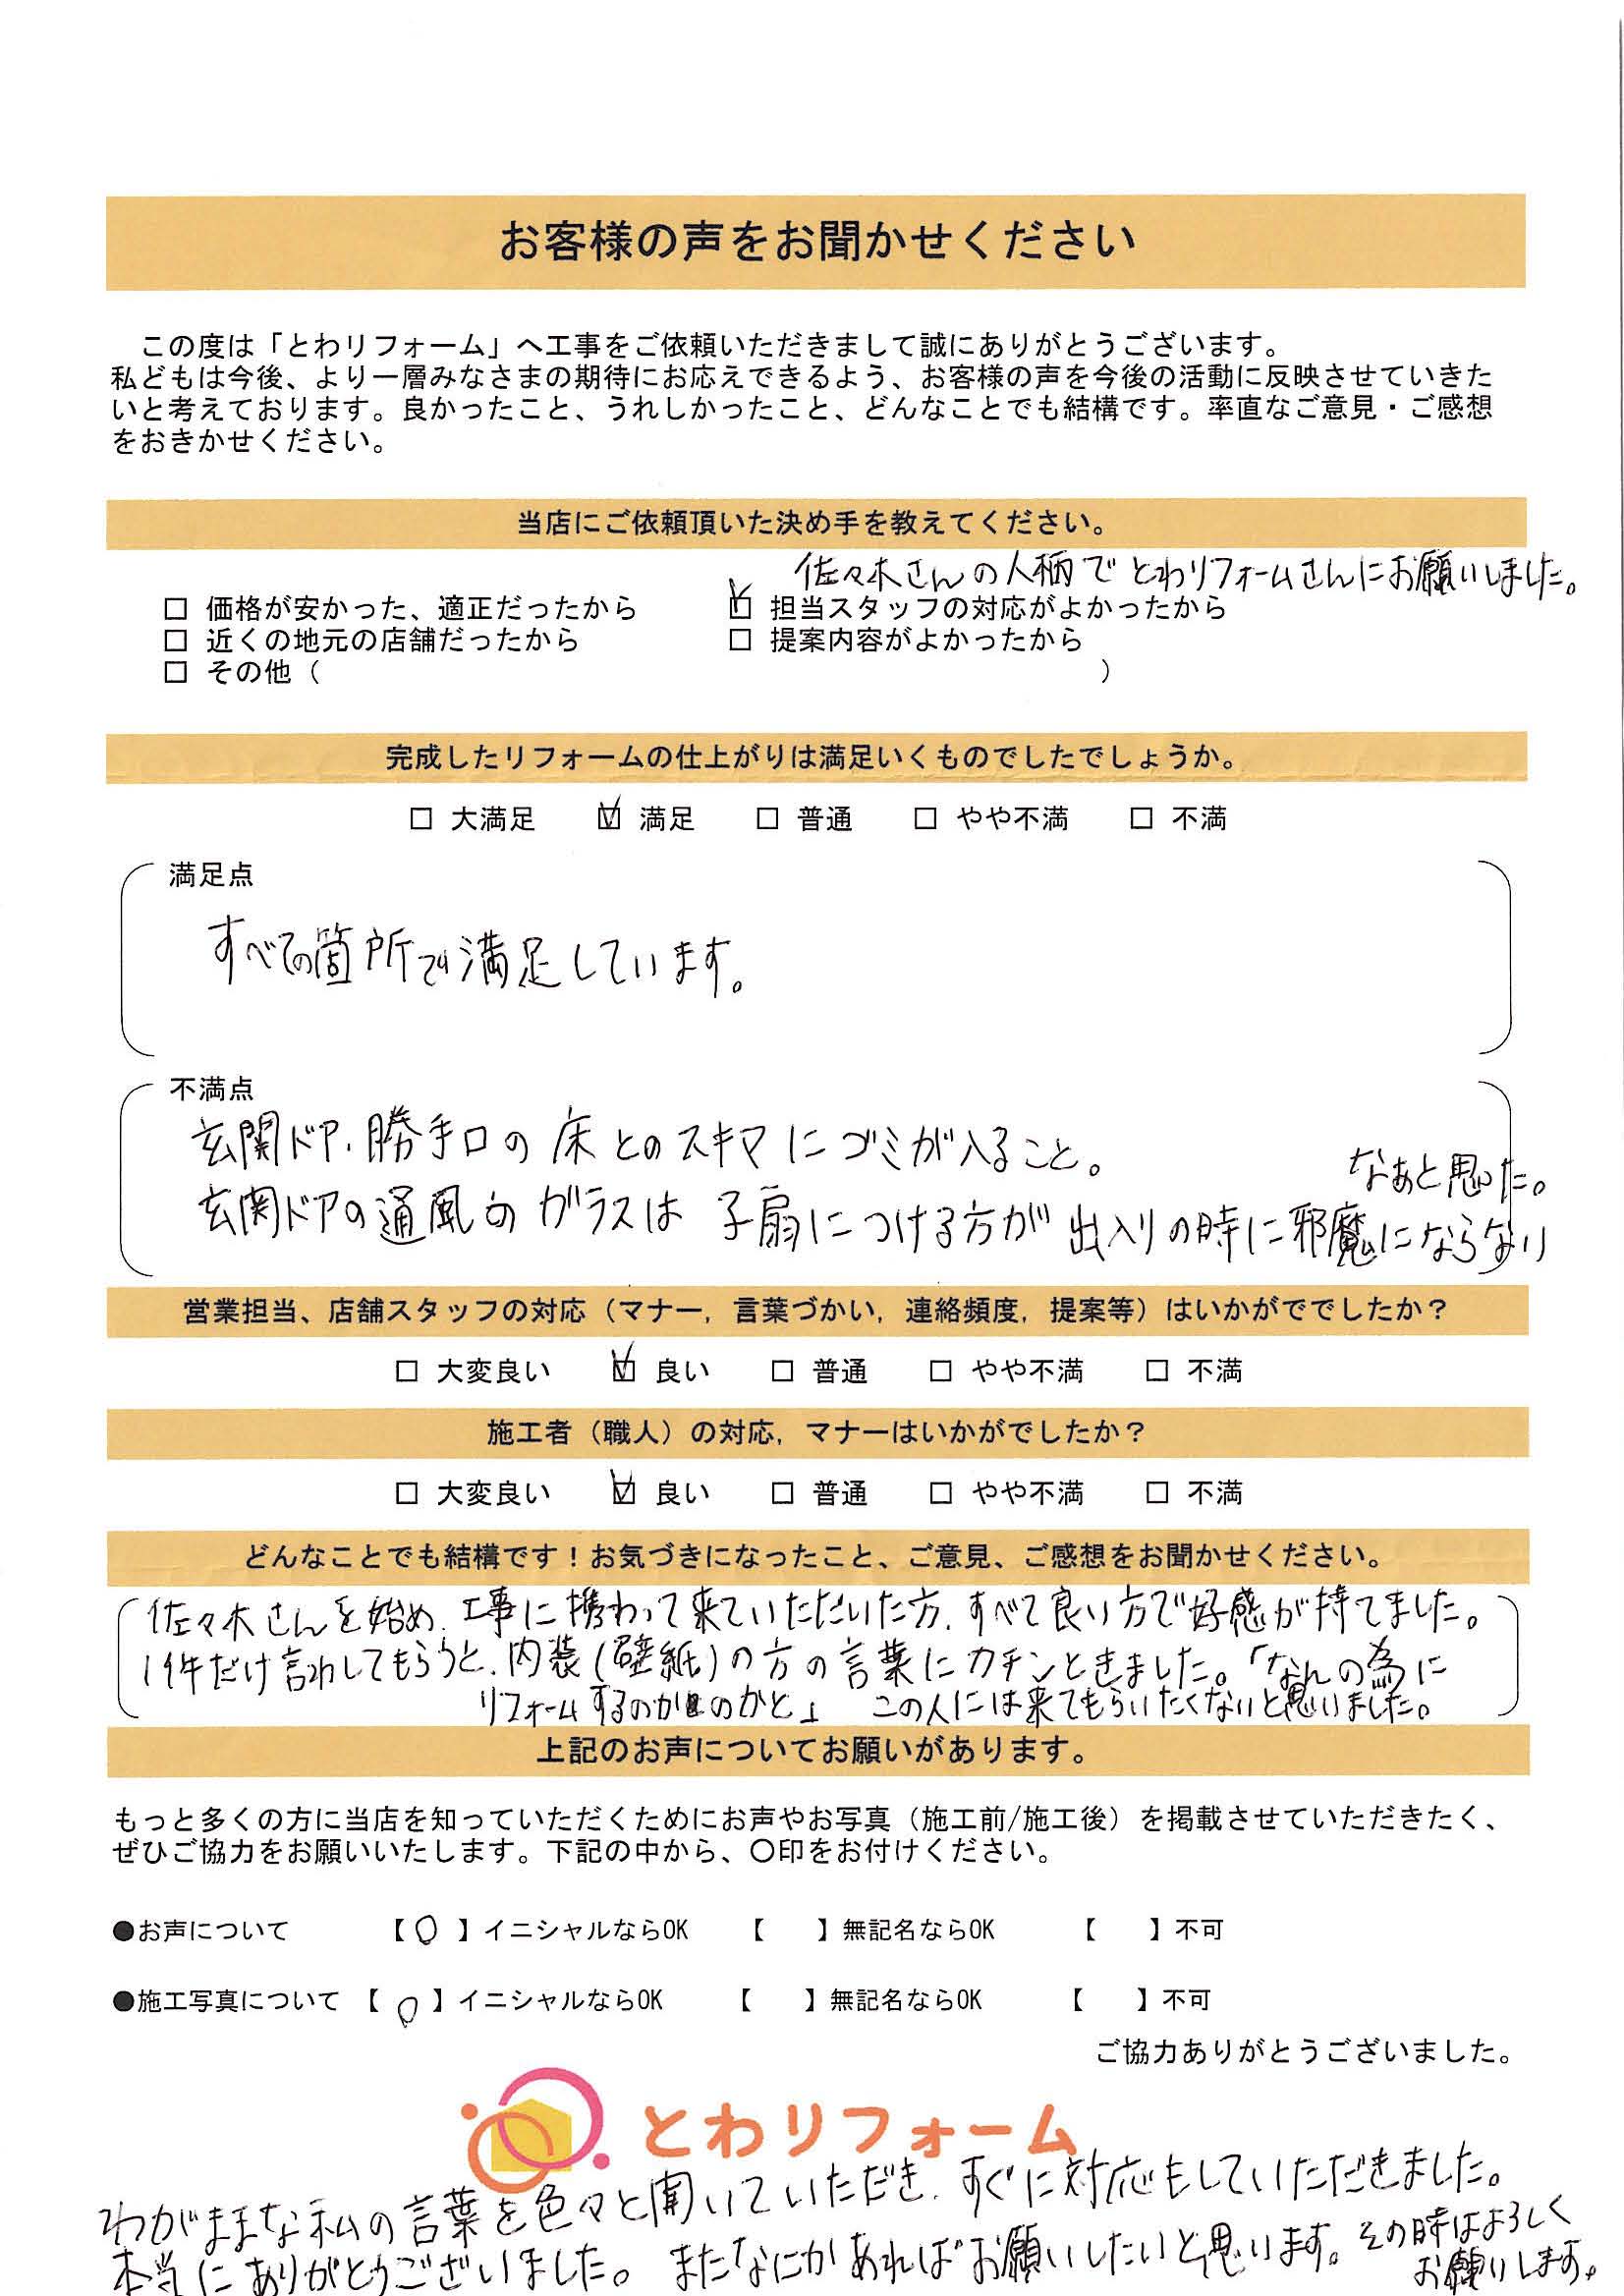 お客様の声をお聞かせください
この度は「とわリフォーム」へ工事をご依頼いただきまして誠にありがとうございます。
私どもは今後、より一層みなさまの期待にお応えできるよう、お客様の声を今後の活動に反映させていきた
いと考えております。良かったこと、うれしかったこと、どんなことでも結構です。率直なご意見・ご感想
をおきかせください。
当店にご依頼頂いた決め手を教えてください。
佐々木さんの人柄でとわリフォームさんにお願いしました。
□ 価格が安かった、適正だったから ☑ 担当スタッフの対応がよかったから
□ 近くの地元の店舗だったから □ 提案内容がよかったから
□ その他（ ）
完成したリフォームの仕上がりは満足いくものでしたでしょうか。
□ 大満足 ☑ 満足 □ 普通 □ やや不満 □ 不満
満足点
すべての箇所で満足しています。
不満点
玄関ドア、勝手口の床とのスキマにゴミが入ること。
玄関ドアの通風のガラスは子扇につける方が出入りの時に邪魔にならない
なぁと思った。
営業担当、店舗スタッフの対応（マナー，言葉づかい，連絡頻度，提案等）はいかがででしたか？
□ 大変良い ☑ 良い □ 普通 □ やや不満 □ 不満
施工者（職人）の対応，マナーはいかがでしたか？
□ 大変良い ☑ 良い □ 普通 □ やや不満 □ 不満
どんなことでも結構です！お気づきになったこと、ご意見、ご感想をお聞かせください。
佐々木さんを始め、工事に携わって来ていただいた方、すべて良い方で好感が持てました。
1件だけ言わしてもらうと、内装(壁紙)の方の言葉にカチンときました。「なんの為に
リフォームするのか のかと」 この人には来てもらいたくないと思いました。
上記のお声についてお願いがあります。
もっと多くの方に当店を知っていただくためにお声やお写真（施工前/施工後）を掲載させていただきたく、
ぜひご協力をお願いいたします。下記の中から、〇印をお付けください。
●お声について 【 〇 】イニシャルならOK 【 】無記名ならOK 【 】不可
●施工写真について 【 〇 】イニシャルならOK 【 】無記名ならOK 【 】不可
ご協力ありがとうございました。
とわリフォーム
わがままな私の言葉を色々と聞いていただき、すぐに対応もしていただきました。
本当にありがとうございました。またなにかあればお願いしたいと思います。その時はよろしく
お願いします。